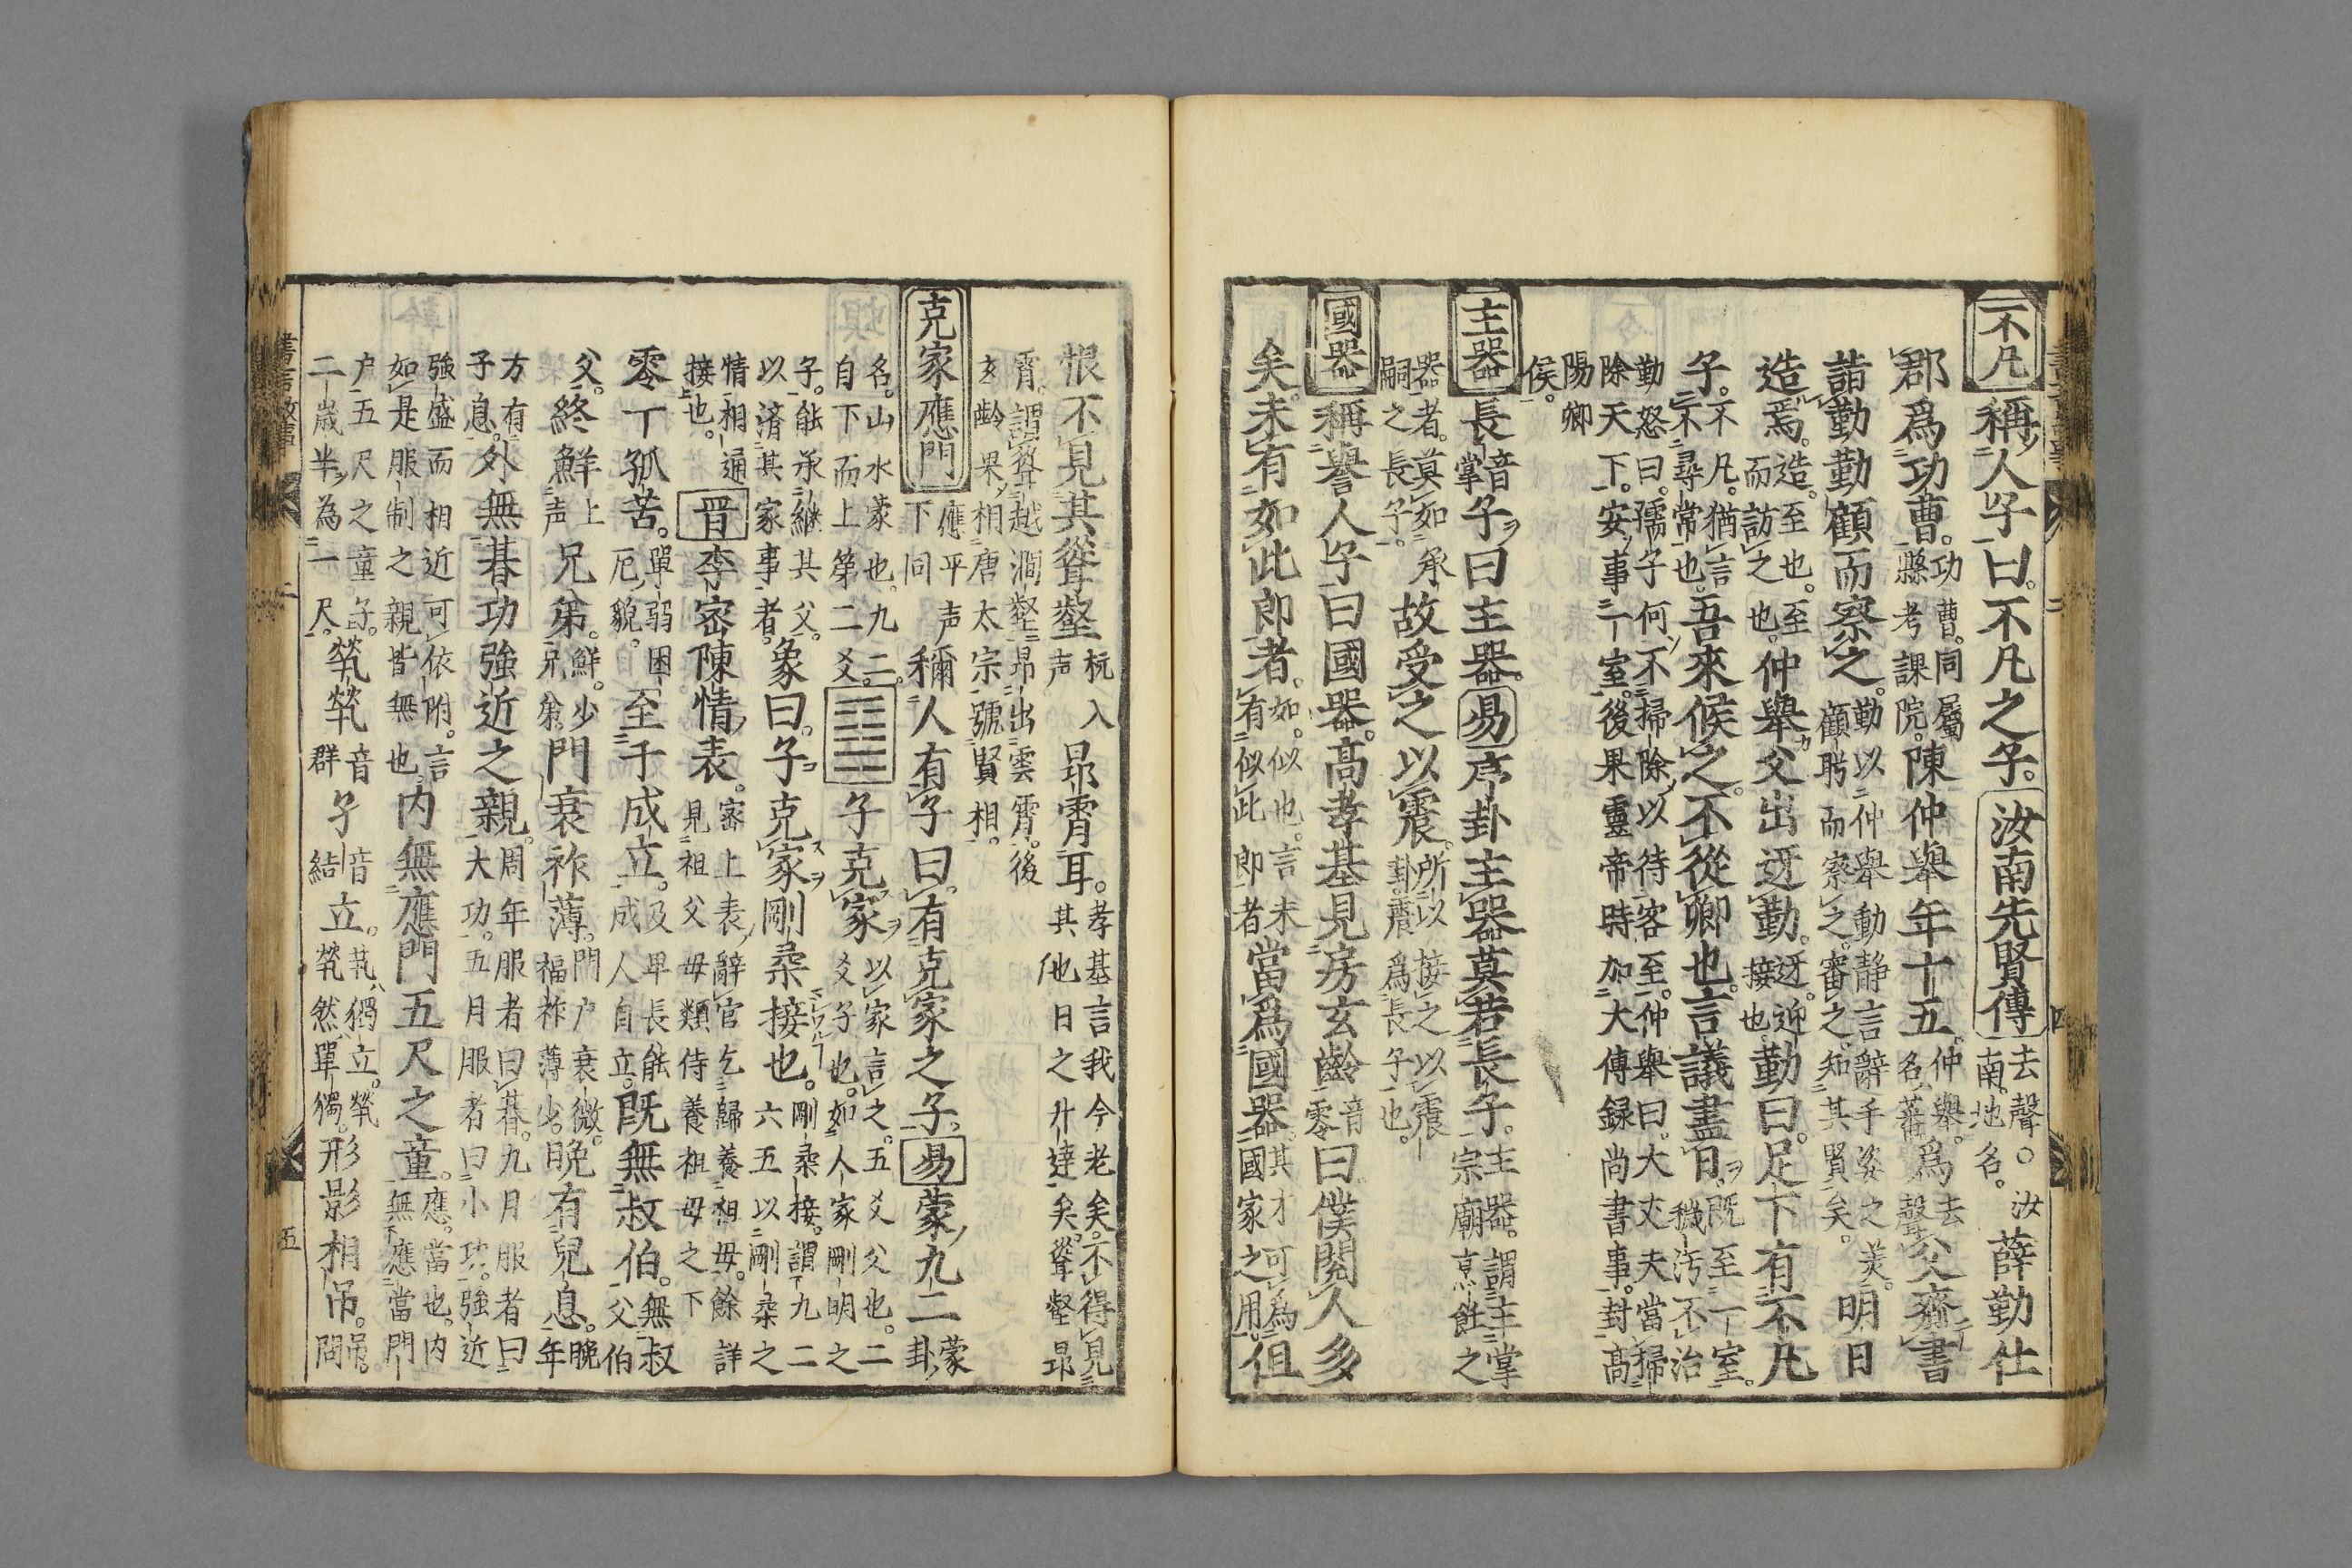 不凡 稱人子曰不凡之子。汝南先賢傳 去聲。○汝南。地名。薛勤仕
郡爲功曹。功曹。同屬縣考課院。陳仲舉年十五。仲舉。爲去聲名蕃父齎書
詣勤勤顧而察之。勤以仲舉動静言辭手姿之羙。顧聘而察之。審之。知其賢矣。明日
造焉。造。至也。至而訪之也。仲舉父出迓勤。迓。迎接也勤曰。足下有不凡
子。不凡。猶言不尋常也。吾來候之。不從卿也。言議盡日。既至一室。穢汚不治
勤怒曰。孺子何不掃除以待客至。仲舉曰。大丈夫當掃
除天下。安事一室。後果靈帝時加大傅録尚書事。封高
陽卿
侯。
主器 長音掌子曰主器。易序卦主器莫若長子。主器。謂主掌宗廟烹飪之
器者。莫如承嗣之長子。故受之以震。所以接之以震卦。震爲長子也。
國器 稱譽人子曰國器。高孝基見房玄齡音零曰僕閱人多
矣。未有如此郎者。如。似也。言未有似此郎者當爲國器。其才可爲國家之用。但
恨不見其聳壑杭入声昻霄耳。孝基言我今老矣。不得見其他日之升達矣。聳壑昻
霄。謂聳越澗壑。昻出雲霄。後
玄齡果相唐太宗。號賢相。
克家應門 應平声下同 稱人有子曰。有克家之子。易蒙九二蒙卦
名。山水蒙也。九二。自下而上第二爻。子克家。以家言之。五爻父也。二爻子也。如人家剛明之
子。能承継其父。以済其家事者。象曰。子克家剛柔接也。剛柔接。謂九二六五以剛柔之
情相通接也。晋李密陳情表。密上表辭官乞歸養祖母。餘詳見祖父母類侍養祖母之下
零丁孤苦。單弱困厄貌。至于成立。及畢長能成人自立。既無叔伯。無叔父伯
父。終鮮上声兄弟。鮮。少兄弟。門衰祚薄。門户衰微。福祚薄少。晩有兒息。晩年
方有子息。外無朞功強近之親。周年服者曰朞。九月服者曰大功。五月服者曰小功。強近
強盛而相近可依附。言如是服制之親皆無也内無應門五尺之童。應。當也。内無應當門
户五尺之童子。二歳半為一尺。煢煢音群孑音結立。煢。獨立。煢煢然單獨。形影相吊。吊。問